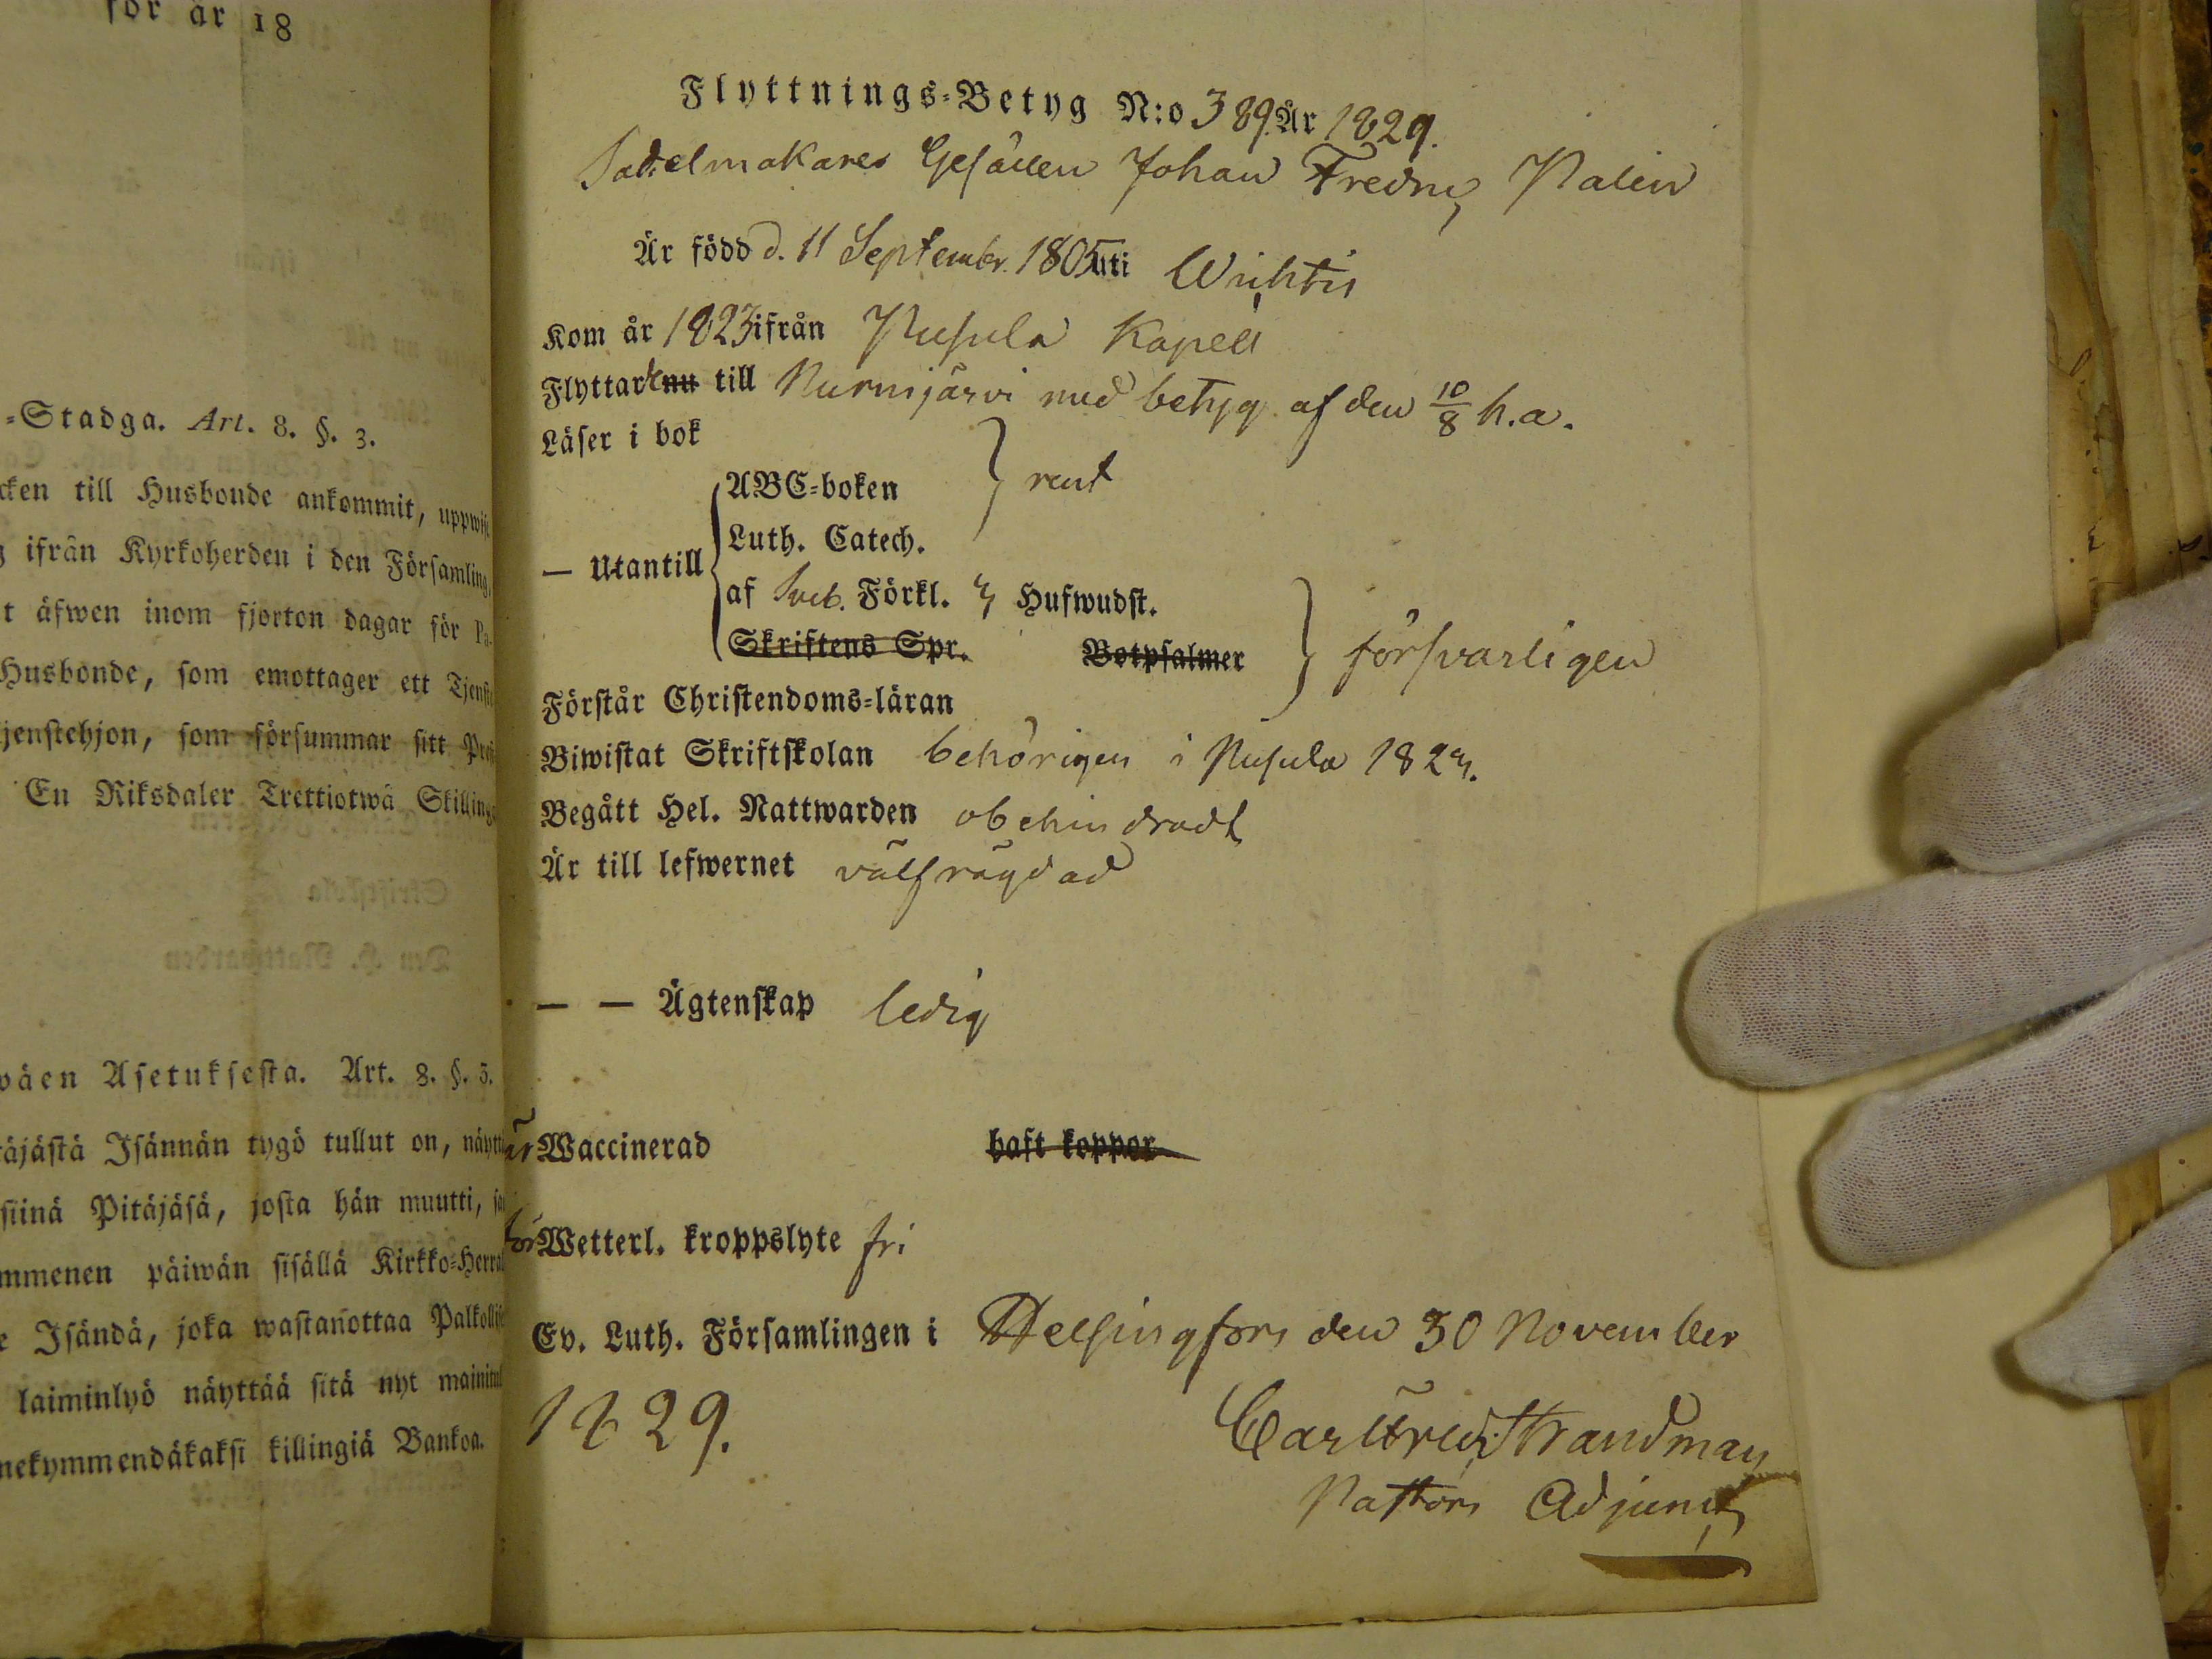 för år 18
=Stadga. Art. 8. §. 3.
cken till Husbonde ankommit, uppwis
g ifrån Kyrkoherden i den Församling,
t äfwen inom fjorton dagar för
Husbonde, som emottager ett Tjenste
jenstehjon, som försummar sitt
En Riksdaler Trettiotwå Skilling
wäen Asetuksesta. Art. 8. §. 3.
täjästä Isännän tygö tullut on, näytt
siinä Pitäjäsä, josta hän muutti,
mmenen päiwän sisällä Kirkko=Herra
e Isändä, joka wastanottaa Palkolli
laiminlyö näyttää sitä nyt mainitu
nekymmendäkaksi killingiä Bankoa.
Flyttnings=Betyg N:o 389. År 1829.
Sadelmakares Gesällen Johan Fredric Palin
Är född d. 11 Septembr. 1805 uti Wichtis
Kom år 1823 ifrån Pusula Kapell
Flyttar nu till Nurmijärvi med betyg af den 10/8 h.a.
Läser i bok
ABC=boken } rent
Luth. Catech.
— Utantill
af Sveb. Förkl. Hufwudst.
Skriftens Spr. Botpsalmer } försvarligen
Förstår Christendoms=läran
Biwistat Skriftskolan behörigen i Pusula 182
Begått Hel. Nattwarden obehindradt
Är till lefwernet välfrägdad
— — Ägtenskap ledig
är Waccinerad haft koppor
för Wetterl. kroppslyte fri
Ev. Luth. Församlingen i Helsingfors den 30 November
1829.
Carl Fredr. Strandman
Pastors Adjunct